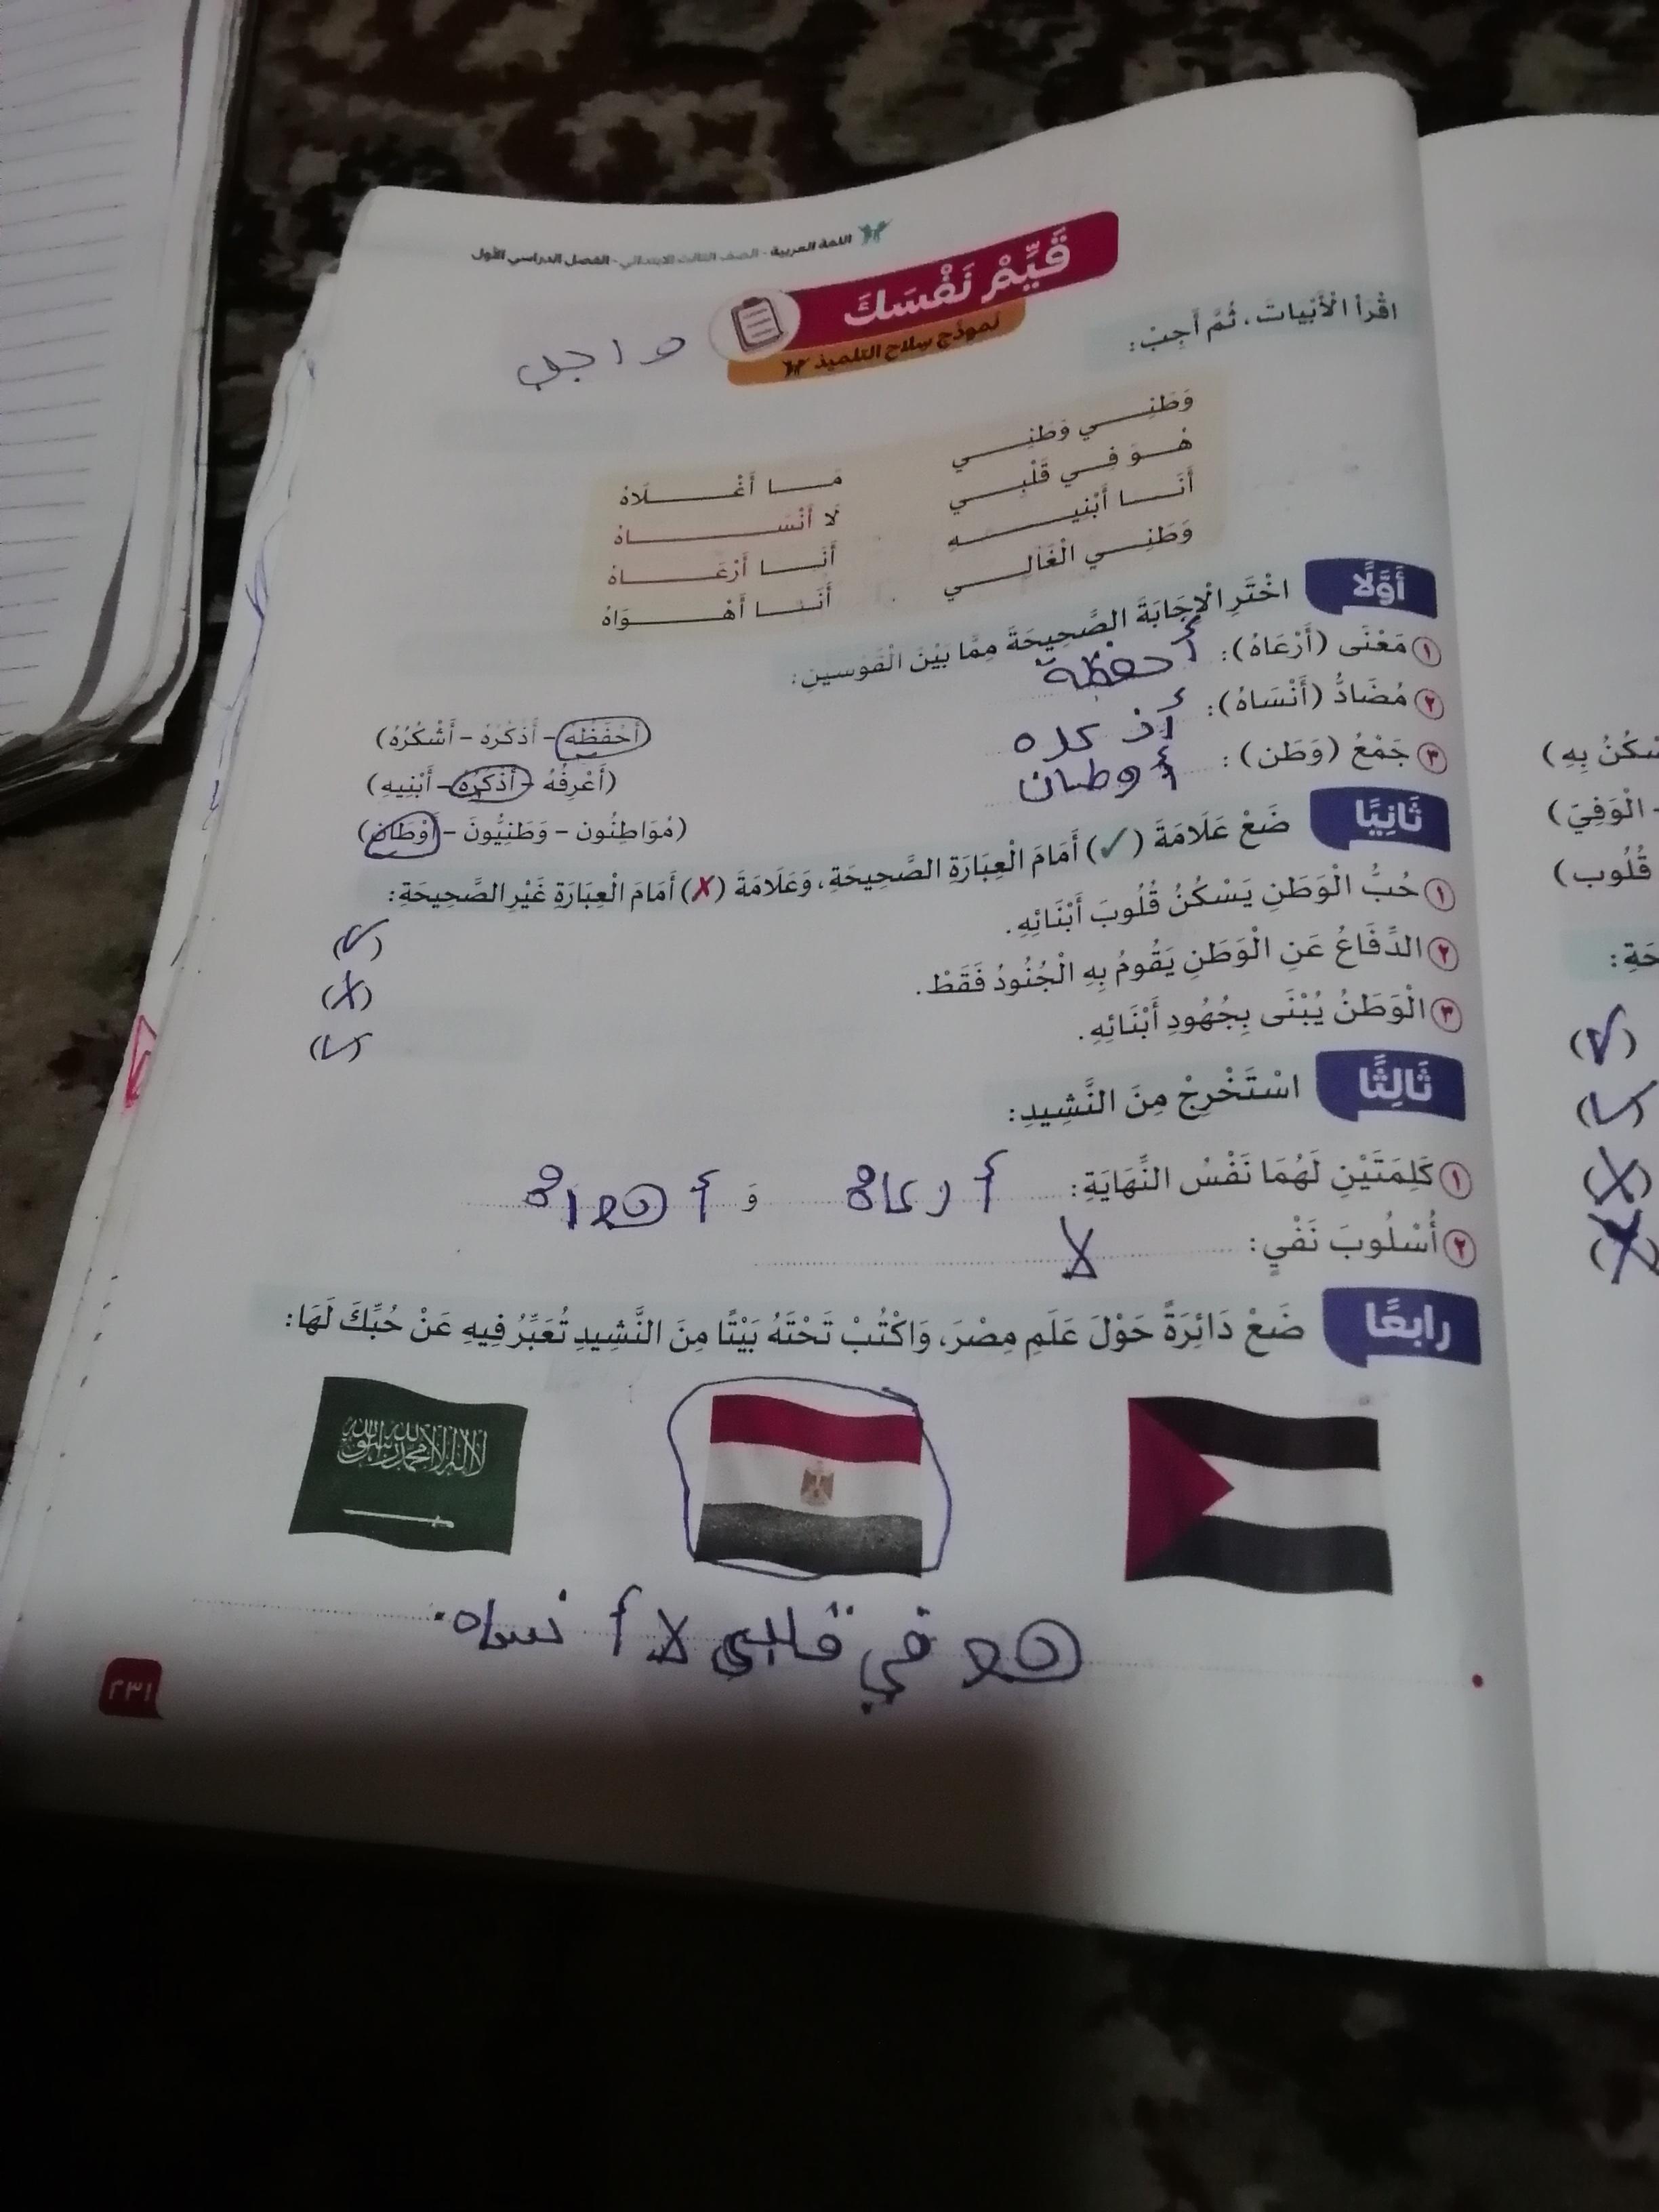 اللغة العربية - الصف الثالث الابتدائي - الفصل الدراسي الأول
قَيِّمْ نَفْسَكَ
نموذج سلاح التلميذ
واجب
اقْرَأْ الْأَبْيَاتَ، ثُمَّ أَجِبْ:
وَطَنِـــي وَطَنِـــي مَـــا أَغْـــلَاهُ
هُـــوَ فِـــي قَلْبِـــي لَا أَنْسَـــاهُ
أَنَـــا أَبْنِيـــهِ أَنَـــا أَرْعَـــاهُ
وَطَنِـــي الْغَالِـــي أَنَـــا أَهْـــوَاهُ
أَوَّلًا اخْتَرِ الْإِجَابَةَ الصَّحِيحَةَ مِمَّا بَيْنَ الْقَوْسَينِ:
١ مَعْنَى (أَرْعَاهُ): أحفظة (أَحْفَظُه - أَذْكُرُهُ - أَشْكُرُهُ)
٢ مُضَادُّ (أَنْسَاهُ): أذكره (أَعْرِفُهُ - أَذْكُرُهُ - أَبْنِيهِ)
٣ جَمْعُ (وَطَن): أوطان (مُوَاطِنُون - وَطَنِيُّونَ - أَوْطَان)
ثَانِيًا ضَعْ عَلَامَةَ (✓) أَمَامَ الْعِبَارَةِ الصَّحِيحَةِ، وَعَلَامَةَ (✗) أَمَامَ الْعِبَارَةِ غَيْرِ الصَّحِيحَةِ:
١ حُبُّ الْوَطَنِ يَسْكُنُ قُلُوبَ أَبْنَائِهِ. (✓)
٢ الدِّفَاعُ عَنِ الْوَطَنِ يَقُومُ بِهِ الْجُنُودُ فَقَطْ. (✗)
٣ الْوَطَنُ يُبْنَى بِجُهُودِ أَبْنَائِهِ. (✓)
ثَالِثًا اسْتَخْرِجْ مِنَ النَّشِيدِ:
١ كَلِمَتَيْنِ لَهُمَا نَفْسُ النِّهَايَةِ: أرعاهُ وَ أهواهُ
٢ أُسْلُوبَ نَفْيٍ: لا
رابعًا ضَعْ دَائِرَةً حَوْلَ عَلَمِ مِصْرَ، وَاكْتُبْ تَحْتَهُ بَيْتًا مِنَ النَّشِيدِ تُعَبِّرُ فِيهِ عَنْ حُبِّكَ لَهَا:
لا إله إلا الله محمد رسول الله
هو في قلبي لا أنساه.
٢٣١
سْكُنُ بِهِ)
- الْوَفِيّ)
قُلُوب)
حَةِ:
(✓)
(✓)
(✗)
(✗)